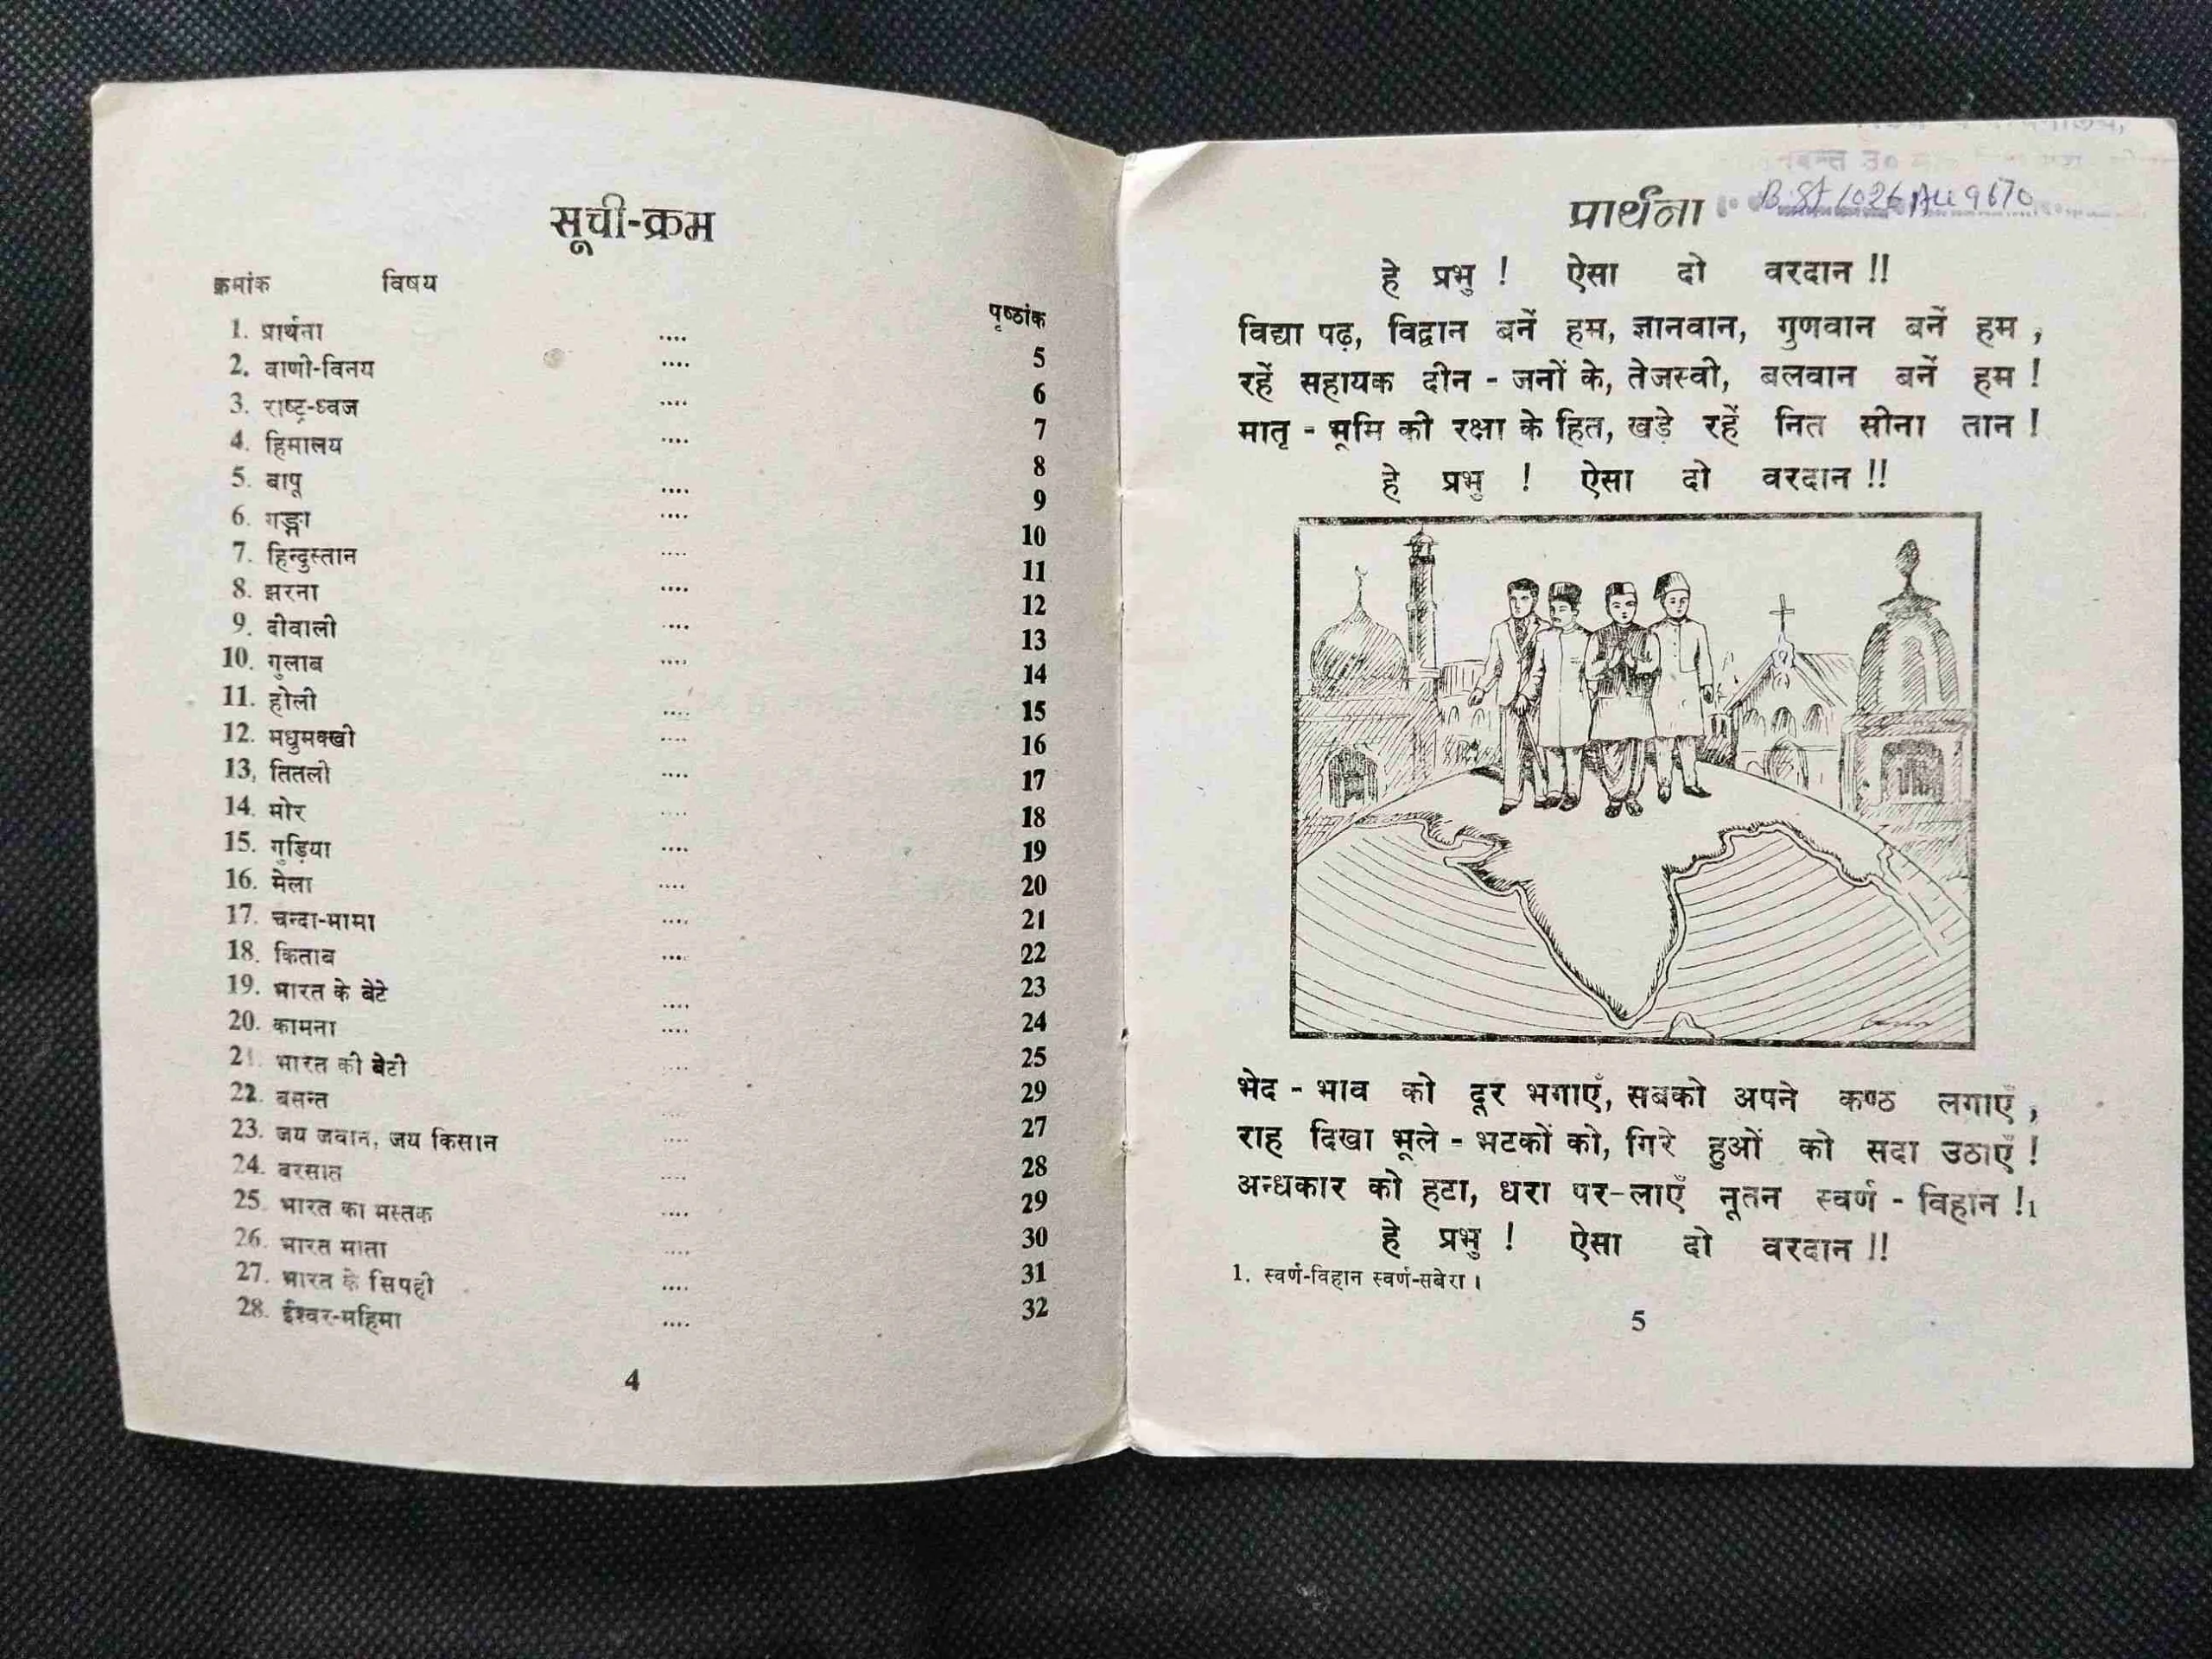 सूची-क्रम
क्रमांक विषय पृष्ठांक
1. प्रार्थना .... 5
2. वाणी-विनय .... 6
3. राष्ट्र-ध्वज .... 7
4. हिमालय .... 8
5. बापू .... 9
6. गङ्गा .... 10
7. हिन्दुस्तान .... 11
8. झरना .... 12
9. दीवाली .... 13
10. गुलाब .... 14
11. होली .... 15
12. मधुमक्खी .... 16
13, तितली .... 17
14. मोर .... 18
15. गुड़िया .... 19
16. मेला .... 20
17. चन्दा-मामा .... 21
18. किताब .... 22
19. भारत के बेटे .... 23
20. कामना .... 24
21. भारत की बेटी .... 25
22. बसन्त .... 29
23. जय जवान, जय किसान .... 27
24. बरसात .... 28
25. भारत का मस्तक .... 29
26. भारत माता .... 30
27. भारत के सिपही .... 31
28. ईश्वर-महिमा .... 32
4
प्रार्थना
हे प्रभु ! ऐसा दो वरदान !!
विद्या पढ़, विद्वान बनें हम, ज्ञानवान, गुणवान बनें हम ,
रहें सहायक दीन - जनों के, तेजस्वी, बलवान बनें हम !
मातृ - भूमि की रक्षा के हित, खड़े रहें नित सीना तान !
हे प्रभु ! ऐसा दो वरदान !!
भेद - भाव को दूर भगाएँ, सबको अपने कण्ठ लगाएँ ,
राह दिखा भूले - भटकों को, गिरे हुओं को सदा उठाएँ !
अन्धकार को हटा, धरा पर-लाएँ नूतन स्वर्ण - विहान !1
हे प्रभु ! ऐसा दो वरदान !!
1. स्वर्ण-विहान स्वर्ण-सबेरा ।
5